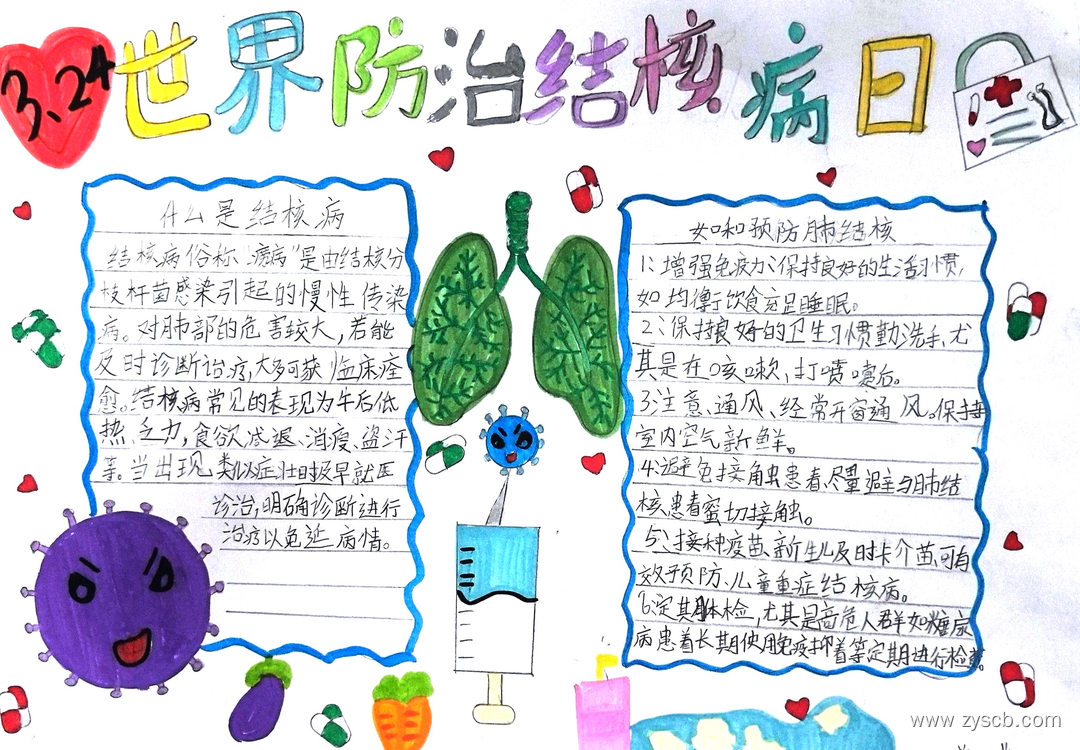 3.24
世界防治结核病日
什么是结核病
结核病俗称"痨病"是由结核分
枝杆菌感染引起的慢性传染
病。对肺部的危害较大,若能
及时诊断治疗,大多可获临床痊
愈。结核病常见的表现为午后低
热、乏力,食欲减退、消瘦、盗汗
等。当出现类似症壮时极早就医
诊治,明确诊断进行
治疗以免延病情。
如和预防肺结核
1:增强免疫力:保持良好的生活习惯,
如均衡饮食充足睡眠。
2:保持良好的卫生习惯勤洗手,尤
其是在咳嗽,打喷嚏后。
3:注意、通风、经常开窗通风。保持
室内空气新鲜。
4:避免接触患者、尽量避与肺结
核患者蜜切接触。
5:接种疫苗、新生儿及时卡介苗,可有
效预防、儿童重症结核病。
6:定其体检,尤其是高危人群如糖尿
病患着长期使用免疫抑着等定期进行检查。
www.zyscb.com